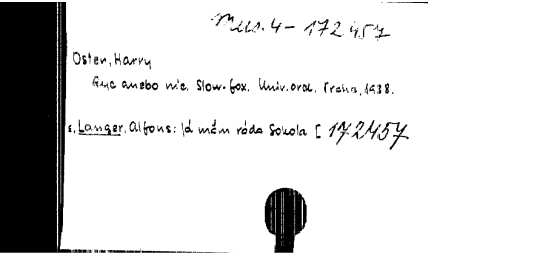 Mus. 4 - 172.457
Osten, Harry
anebo nic. Slow-fox. Univ. orch. Praha, 1938.
s. Langer, Alfons: Já mám ráda Sokola [ 172457